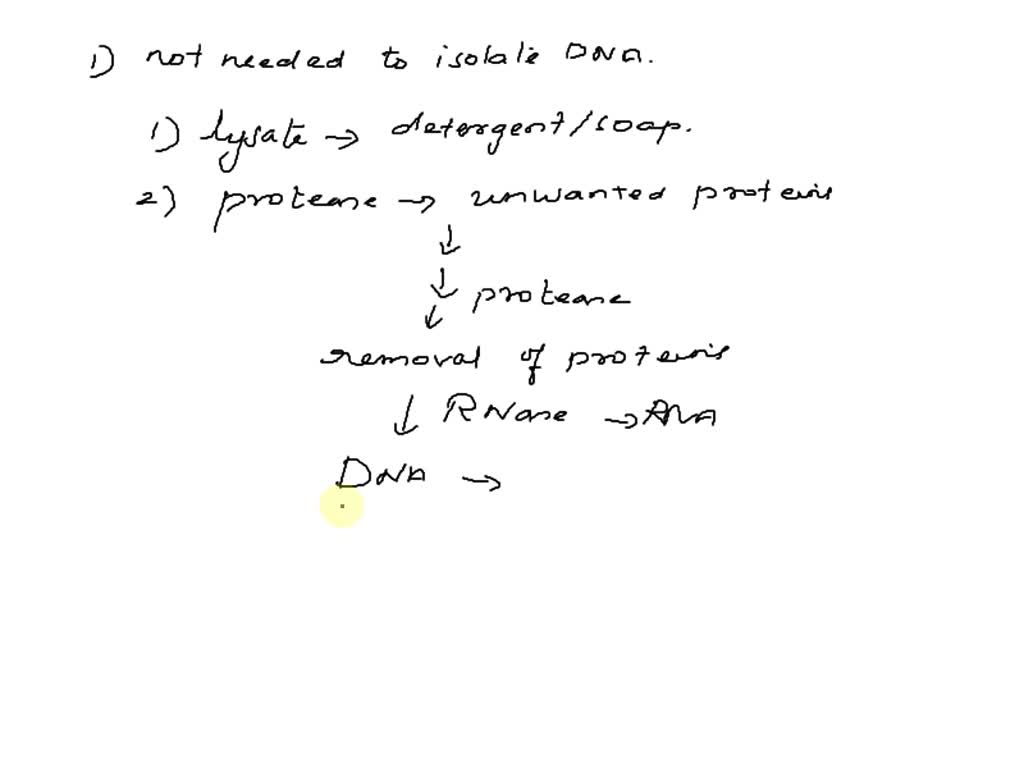 1) not needed to isolate DNA.
1) lysate → detergent/soap.
2) protease → unwanted proteins
↓
↓ protease
↓
removal of proteins
↓ RNase → RNA
DNA →